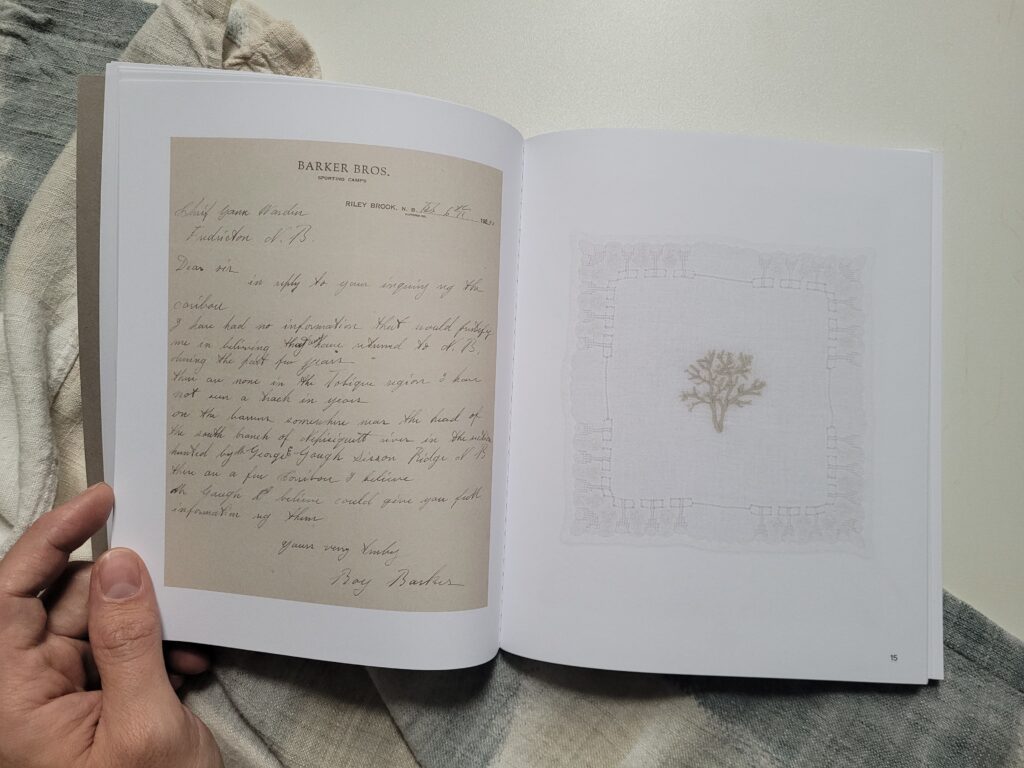 BARKER BROS.
SPORTING CAMPS
RILEY BROOK, N. B. Feb 6th 19
Chief Game Warden
Fredricton N. B.
Dear sir
in reply to your inquiry rg the
caribou
I have had no information that would justify
me in believing that have returned to N. B.
during the past few years
there are none in the Tobique region I have
not seen a track in years
on the barrens somewhere near the head of
the south branch of Nepisiquitt river in the section
hunted by George Gough Sisson Ridge N B
there are a few Caribou I believe
Gough I believe could give you full
information rg them
yours very truly
Roy Barker
15